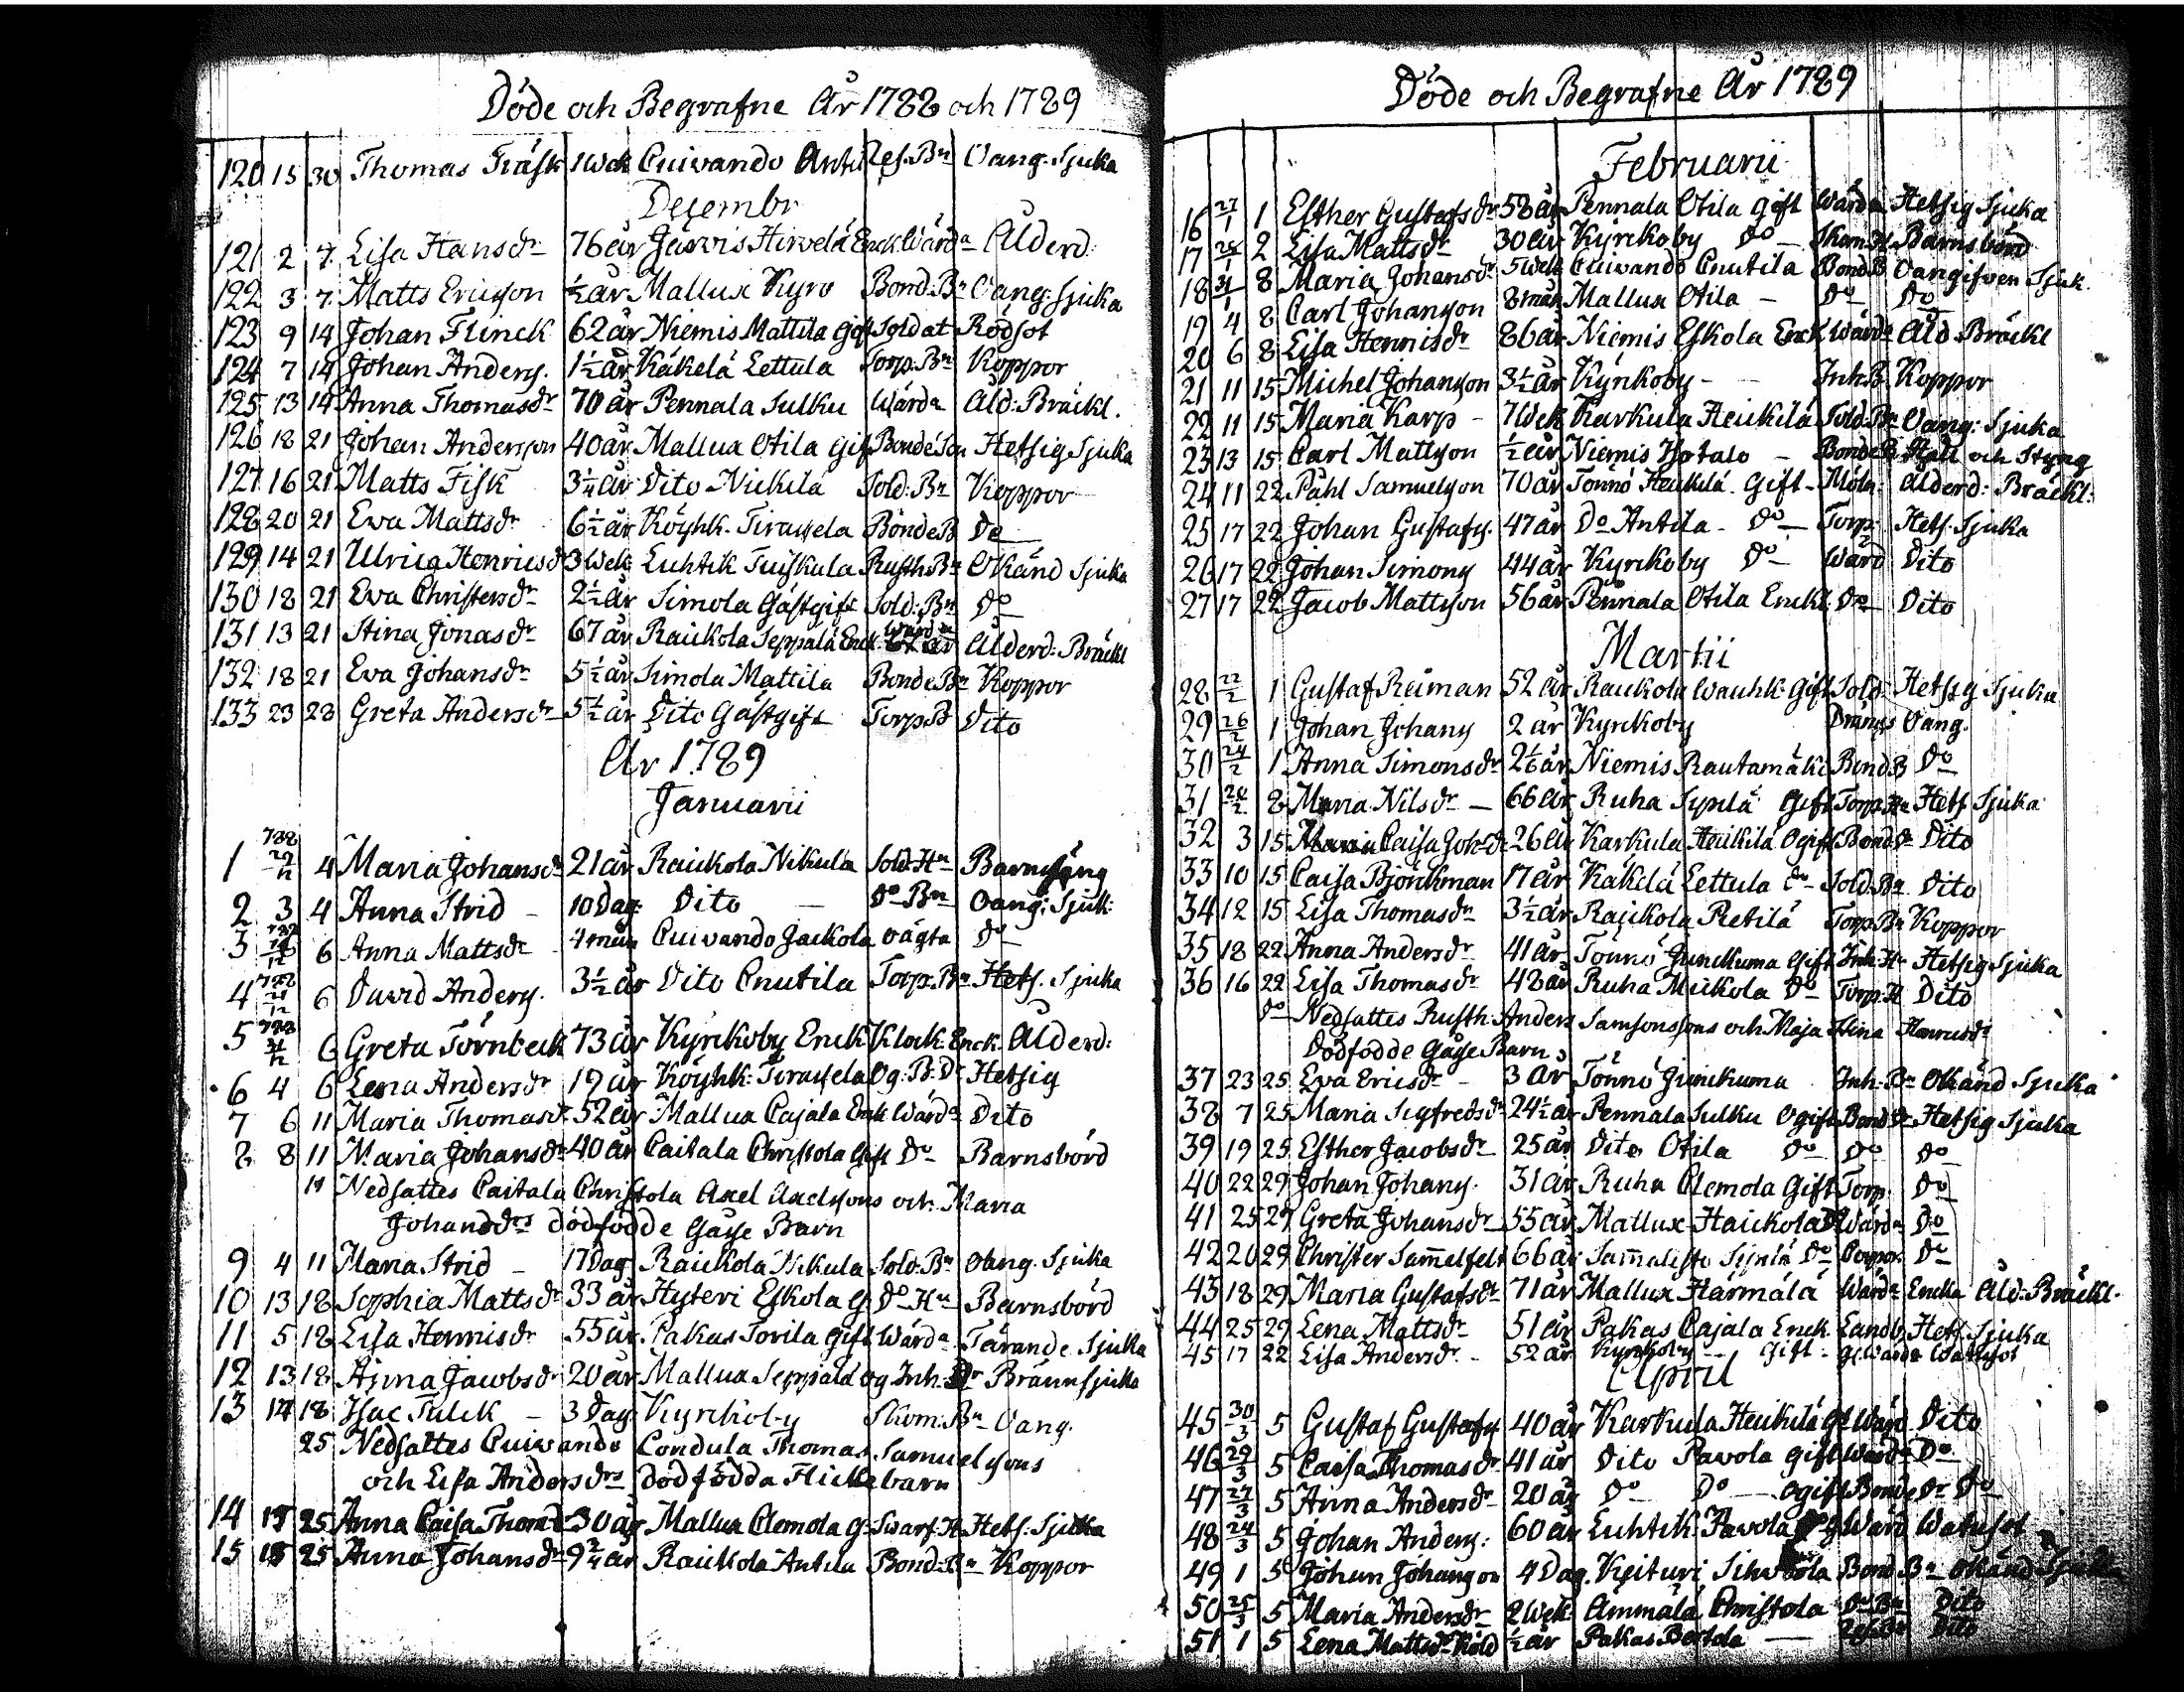 Döde och Begrafne År 1788 och 1789
120 15 30 Thomas Träsk 1 Wek Cuivando Antti Res. Bn Oang. Sjuka
Decembr
121 2 7 Lisa Hansdr 76 år Järvis Hirvelä Enck Wärda Ålderd:
122 3 7 Matts Ericsson ½ år Mallux Kyrö Bond: Bn Oang: Sjuka
123 9 14 Johan Flinck 62 år Niemis Mattila Gift Soldat Rödsot
124 7 14 Johan Anders. 1½ år Käkelä Lettula Torp. Bn Koppor
125 13 14 Anna Thomasdr 70 år Pennala Sulku Wärda Åld: Bräckl.
126 18 21 Johan Andersson 40 år Mallux Otila Gift Bonde Son Hetsig Sjuka
127 16 21 Matts Fisk 3¼ år Dito Nickilä Sold: Bn Koppor
128 20 21 Ewa Mattsdr 6½ år Köyhk. Tirassela Bonde B Do
129 14 21 Ulrica Henricsdr 3 Wek Luhtik Tuiskula Rusth. Bn Okänd Sjuka
130 18 21 Ewa Christersdr 2½ år Simola Gästgift Sold. Bn Do
131 13 21 Stina Jonasdr 67 år Raickola Seppälä Enck Wärda Ålderd: Bräckl
132 18 21 Eva Johansdr 5½ år Simola Mattila Bonde Bn Koppor
133 23 28 Greta Andersdr 5½ år Dito Gästgift Torp. B Dito
År 1789
Januarii
1 788 29/12 4 Maria Johansdr 21 år Raickola Nikula Sold. Hu Barnsäng
2 3 4 Anna Strid – 10 Dag: Dito – Do Bn Oang: Sjuk:
3 6 Anna Mattsdr 4 mån Cuivando Jackola oägta Do
4 788 6 David Anders. 3½ år Dito Cnutila Torp. Bn Hets. Sjuka
5 788 31/12 6 Greta Törnbeck 73 år Kyrckoby Enck Klock. Enck. Ålderd:
6 4 6 Lena Andersdr 19 år Köyhk: Tirassela Og. B: Dr Hetsig
7 6 11 Maria Thomasdr 52 år Mallux Cajala Enk Wärda Dito
8 8 11 Maria Johansdr 40 år Caitala Christola Gift Do Barnsbörd
11 Nedsattes Caitala Christola Axel Axelssons och Maria
Johansdrs dödfödde Gåsse Barn
9 4 11 Maria Strid – 17 Dag Raickola Nikula Sold. Bn Oang. Sjuka
10 13 18 Sophia Mattsdr 33 år Hyteri Eskola G. Do Hu Barnsbörd
11 5 18 Lisa Hennisdr 55 år Pakas Torila Gift Wärda Tärande Sjuka
12 13 18 Anna Jacobsdr 20 år Mallux Seppälä og Inh. Dr Brännsjuka
13 14 18 Isac Sulck – 3 Dag. Kyrckoby Skom: Bn Oang.
25 Nedsattes Cuivando Condula Thomas Samuelssons
och Lisa Andersdrs dödfödda Flickebarn
14 15 25 Anna Caisa Thomdr 30 år Mallux Clemola G. Swarf. H Hets. Sjuka
15 15 25 Anna Johansdr 9¾ år Raickola Antila Bond: Bn Koppor
Döde och Begrafne År 1789
Februarii
16 27/1 1 Esther Gustafsdr 58 år Pennala Otila Gift Wärda Hetsig Sjuka
17 28/1 2 Lisa Mattsdr 30 år Kyrckoby Do – Skom. H Barnsbörd
18 31/1 8 Maria Johansdr 5 Wek Cuivando Cnutila Bond. B Oangifven Sjuk.
19 4 8 Carl Johansson 8 mån Mallux Otila – Do Do
20 6 8 Lisa Hennisdr 86 år Niemis Eskola Enck Wärda Åld. Bräckl
21 11 15 Michel Johansson 3½ år Kyrckoby – Inh. B. Koppor
22 11 15 Maria Karp – 7 Wek Karkula Heickilä Sold. Bn Oang: Sjuka
23 13 15 Carl Mattsson ½ år Niemis Ylötalo – Bonde B Håll och Styng
24 11 22 Påhl Samuelsson 70 år Tönnö Heickilä. Gift – Möln: Ålderd: Bräckl:
25 17 22 Johan Gustafs. 47 år Do Antila – Do – Torp. Hets. Sjuka
26 17 22 Johan Simons 44 år Kyrckoby Do – Wärd Dito
27 17 22 Jacob Mattsson 56 år Pennala Otila Enckl. Do Dito
Martii
28 22/2 1 Gustaf Reiman 52 år Raickola Wauhk. Gift Sold: Hetsig Sjuka
29 26/2 1 Johan Johans 2 år Kyrckoby Drängs Oang.
30 24/2 1 Anna Simonsdr 2½ år Niemis Rautamäki Bond B Do
31 28/2 8 Maria Nilsdr – 66 år Ruha Sypilä Gift Torp. Hu Hets Sjuka
32 3 15 Maria Caisa Johdr 26 år Karkula Heickilä Ogift Bond. Dr Dito
33 10 15 Caisa Björckman 17 år Käkelä Lettula Do Sold. Bn Dito
34 12 15 Lisa Thomasdr 3½ år Raickola Retilä Torp. Bn Koppor
35 18 22 Anna Andersdr 41 år Tönnö Junckuma Gift Inh. Hu Hetsig Sjuka
36 16 22 Lisa Thomasdr 48 år Ruha Mickola Do Torp. H Dito
Do Nedsattes Rusth. Anders Samsonssons och Maja Stina Henricsdrs
Dödfödde Gåsse Barn
37 23 25 Eva Ericsdr – 3 år Tönnö Junckuma Inh. Bn Okänd Sjuka
38 7 25 Maria Sigfredsdr 24½ år Pennala Sulku Ogift Bond. Dr Hetsig Sjuka
39 19 25 Esther Jacobsdr 25 år Dito Otila Do Do Do
40 22 29 Johan Johans. 31 år Ruha Clemola Gift Torp. Do
41 25 29 Greta Johansdr 55 år Mallux Haickola Do Wärda Do
42 20 29 Christer Sammelfelt 66 år Sammalisto Do Corpor. Do
43 18 29 Maria Gustafsdr 71 år Mallux Härmälä Wärda Encka Åld: Bräckl.
44 25 29 Lena Mattsdr 51 år Pakas Cajala Enck. Landb. Hets. Sjuka
45 17 22 Lisa Andersdr. – 52 år Kyrckoby – Gift – Wärda Watusot
April
45 30/3 5 Gustaf Gustafs 40 år Karkula Heickilä Gift Wärd Dito
46 29/3 5 Caisa Thomasdr 41 år Dito Pavola Gift Wärda Do
47 27/3 5 Anna Andersdr 20 år Do Do – Ogift Bonde Dr Do
48 24/3 5 Johan Anders: 60 år Luhtik. Pavola G Wärd Watusot
49 1 5 Johan Johansson 4 Dag. Keituri Bond Bn okänd Sjuka
50 25/3 5 Maria Andersdr 2 Wek. Ammälä Christola Do Bn Dito
51 1 5 Lena Mattsdr Köld ½ år Pakas Bertola – Res. Bn Dito